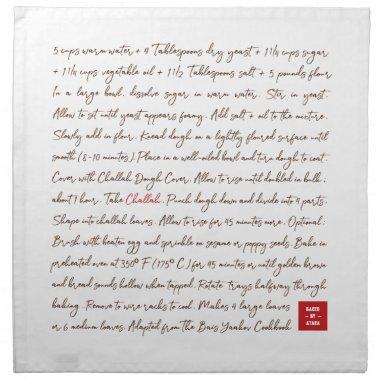 5 cups warm water + 4 Tablespoons dry yeast + 1 1/4 cups sugar
+ 1 1/4 cups vegetable oil + 1 1/2 Tablespoons salt + 5 pounds flour
In a large bowl, dissolve sugar in warm water. Stir in yeast.
Allow to sit until yeast appears foamy. Add salt + oil to the mixture.
Slowly add in flour. Knead dough on a lightly floured surface until
smooth (8-10 minutes). Place in a well-oiled bowl and turn dough to coat.
Cover with Challah Dough Cover. Allow to rise until doubled in bulk;
about 1 hour. Take Challah. Punch dough down and divide into 4 parts.
Shape into challah loaves. Allow to rise for 45 minutes more. Optional:
Brush with beaten egg and sprinkle on sesame or poppy seeds. Bake in
preheated oven at 350° F (175° C) for 45 minutes or until golden brown
and bread sounds hollow when tapped. Rotate trays halfway through
baking. Remove to wire racks to cool. Makes 4 large loaves
or 6 medium loaves. Adapted from the Bais Yaakov Cookbook
BAKED
— BY —
ATARA